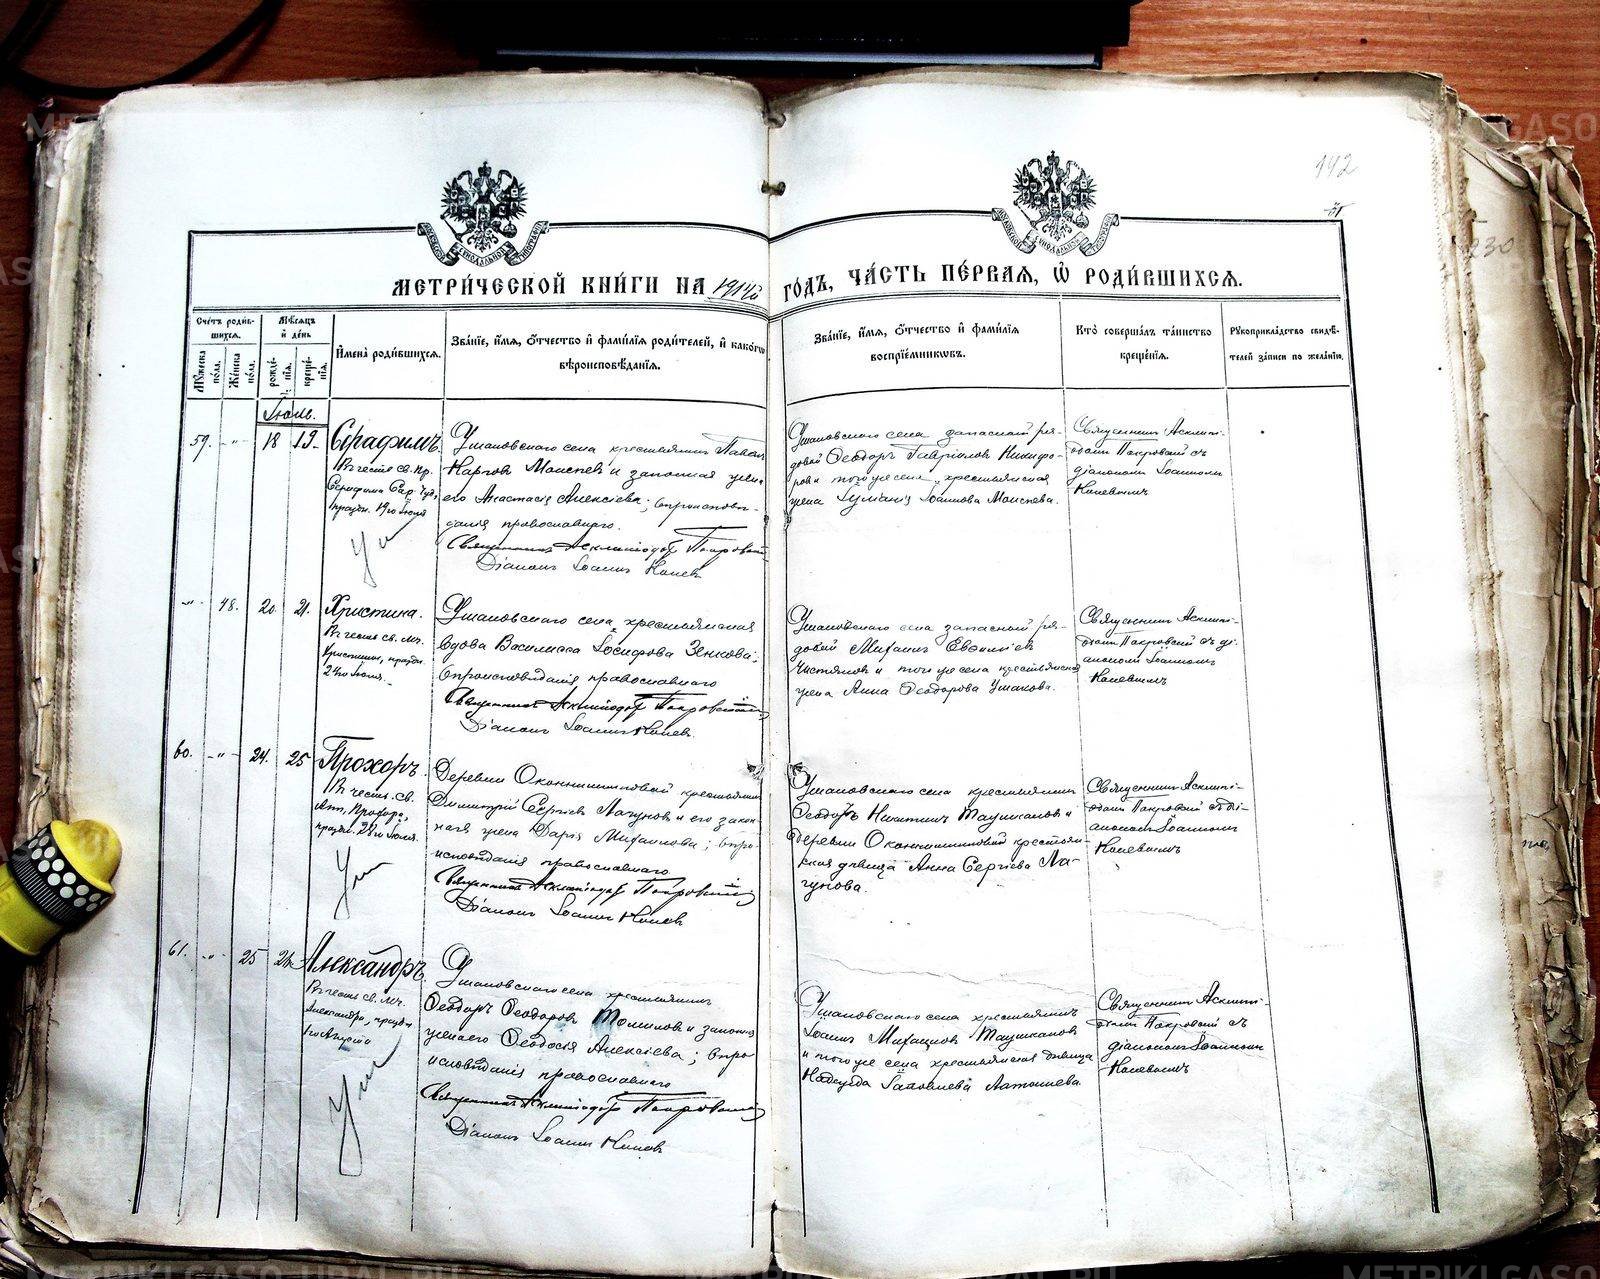 142
МЕТРИ́ЧЕСКОЙ КНИ́ГИ НА 1914й ГОДЪ, ЧА́СТЬ ПЕ́РВАЯ, Ѡ РОДИ́ВШИХСЯ.
Сче́тъ роди́вшихся.
Му́жеска по́ла.
Же́нска по́ла.
Мѣ́сяцъ и҆ де́нь
рожде́нїѧ.
креще́нїѧ.
И҆мена̀ роди́вшихсѧ.
Зва́нїе, и҆́мѧ, ѻ҆́тчество и҆ фами́лїѧ роди́телей, и҆ како́гѡ
вѣроисповѣ́данїѧ.
Зва́нїе, и҆́мѧ, ѻ҆́тчество и҆ фами́лїѧ
воспрїе́мникωвъ.
Кто̀ соверша́лъ та́инство
креще́нїѧ.
Рꙋкоприкла́дство свидѣ́-
телей за́писи по жела́нїю.
Іюль.
59. -"- 18 19. Серафимъ.
Въ честь св. пр.
Серафима Сар. Чуд.,
праздн. 19го іюля
Ум
Ушаковскаго села крестьянинъ Павелъ
Карповъ Моисеевъ и законная жена
его Анастасія Алексіева; вѣроисповѣ-
данія православнаго.
Священникъ Асклипіодотъ Покровскій
Діаконъ Іоаннъ Копевъ
Ушаковскаго села запасный ря-
довой Ѳеодоръ Гавріиловъ Никифо-
ровъ и того же села крестьянская
жена Іоаннова Моисеева.
Священникъ Асклипі-
одотъ Покровскій съ
діакономъ Іоанномъ
Копевымъ
-"- 48. 20. 21. Христина.
Въ честь св. мч.
Христины, праздн.
24го Іюля.
Ушаковскаго села крестьянская
вдова Василисса Іосифова Зенкова;
вѣроисповѣданія православнаго
Священникъ Асклипіодотъ Покровскій
Діаконъ Іоаннъ Копевъ.
Ушаковскаго села запасный ря-
довой Михаилъ Евѳиміевъ
Чистяковъ и того же села крестьянская
жена Анна Ѳеодорова Ушакова.
Священникъ Асклипі-
одотъ Покровскій съ ді-
акономъ Іоанномъ
Копевымъ
60. -"- 24. 25 Прохоръ.
Въ честь св.
Ап. Прохора,
праздн. 28го Іюля.
Ум
Деревни крестьянинъ
Димитрій Сергіевъ Лагуновъ и его закон-
ная жена Дарія Михаилова; вѣро-
исповѣданія православнаго
Священникъ Асклипіодотъ Покровскій
Діаконъ Іоаннъ Копевъ
Ушаковскаго села крестьянинъ
Ѳеодоръ Никитинъ Таушкановъ и
деревни крестьян-
ская дѣвица Анна Сергіева Ла-
гунова.
Священникъ Асклипі-
одотъ Покровскій съ ді-
акономъ Іоанномъ
Копевымъ
61. -"- 25 26 Александръ.
Въ честь св. мч.
Александра, праздн.
Августа
Ум
Ушаковскаго села крестьянинъ
Ѳеодоръ Ѳеодоровъ Томиловъ и законная
жена его Ѳеодосія Алексіева; вѣро-
исповѣданія православнаго
Священникъ Асклипіодотъ Покровскій
Діаконъ Іоаннъ Копевъ
Ушаковскаго села крестьянинъ
Іоаннъ Михаиловъ Таушкановъ
и того же села крестьянская дѣвица
Надежда Латышева
Священникъ Асклипі-
одотъ Покровскій съ
діакономъ Іоанномъ
Копевымъ
230